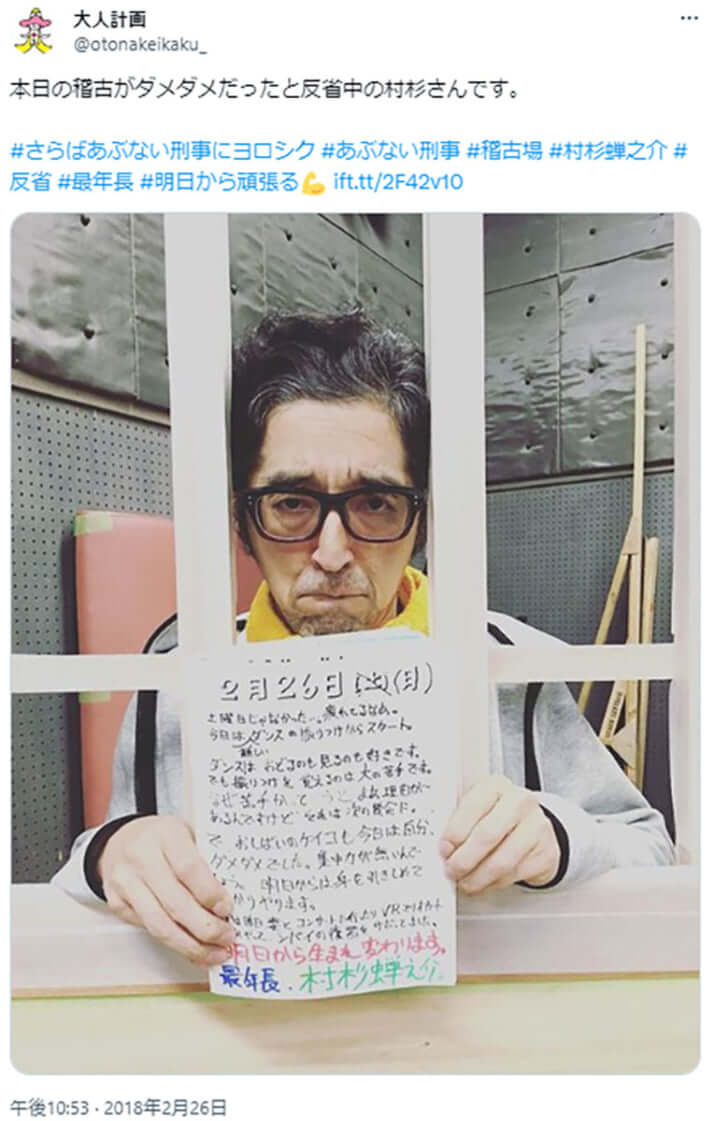 大人計画
@otonakeikaku_
本日の稽古がダメダメだったと反省中の村杉さんです。
#さらばあぶない刑事にヨロシク #あぶない刑事 #稽古場 #村杉蝉之介 #
反省 #最年長 #明日から頑張る💪 ift.tt/2F42v10
2月26日(月)
土曜日じゃなかった…。疲れてるなぁ。
今日は ダンスの振りつけからスタート。
難しい
ダンスは おどるのも見るのも好きです。
でも振りつけを 覚えるのは大の苦手です。
苦手かって 理由が
あるんですけど それは次の機会に。
で、おしばいのケイコも今日は自分、
ダメダメでした。集中力が無いんで
しょう。明日からは身を引きしめて
かりやります。
明日から生まれ変わります。
最年長、村杉蝉之介
午後10:53 · 2018年2月26日